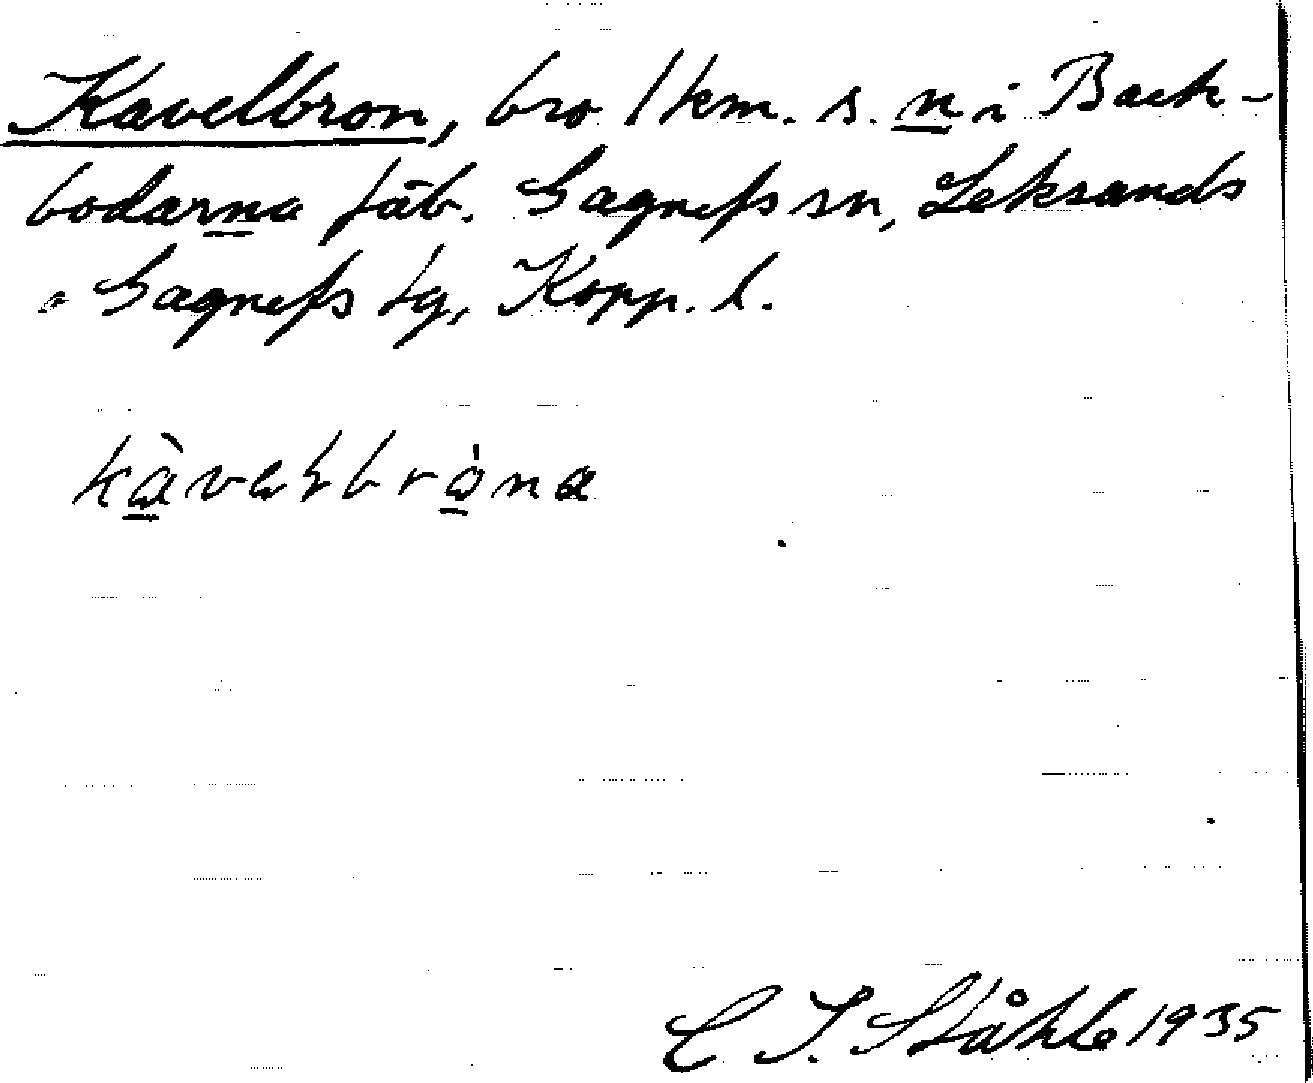 Kavelbron, bro 1 km. s. n i Back-
bodarna fäb. Gagnefs sn, Leksands
o Gagnefs tg, Kopp. l.
kàvelbròna
C I. Ståhle 1935